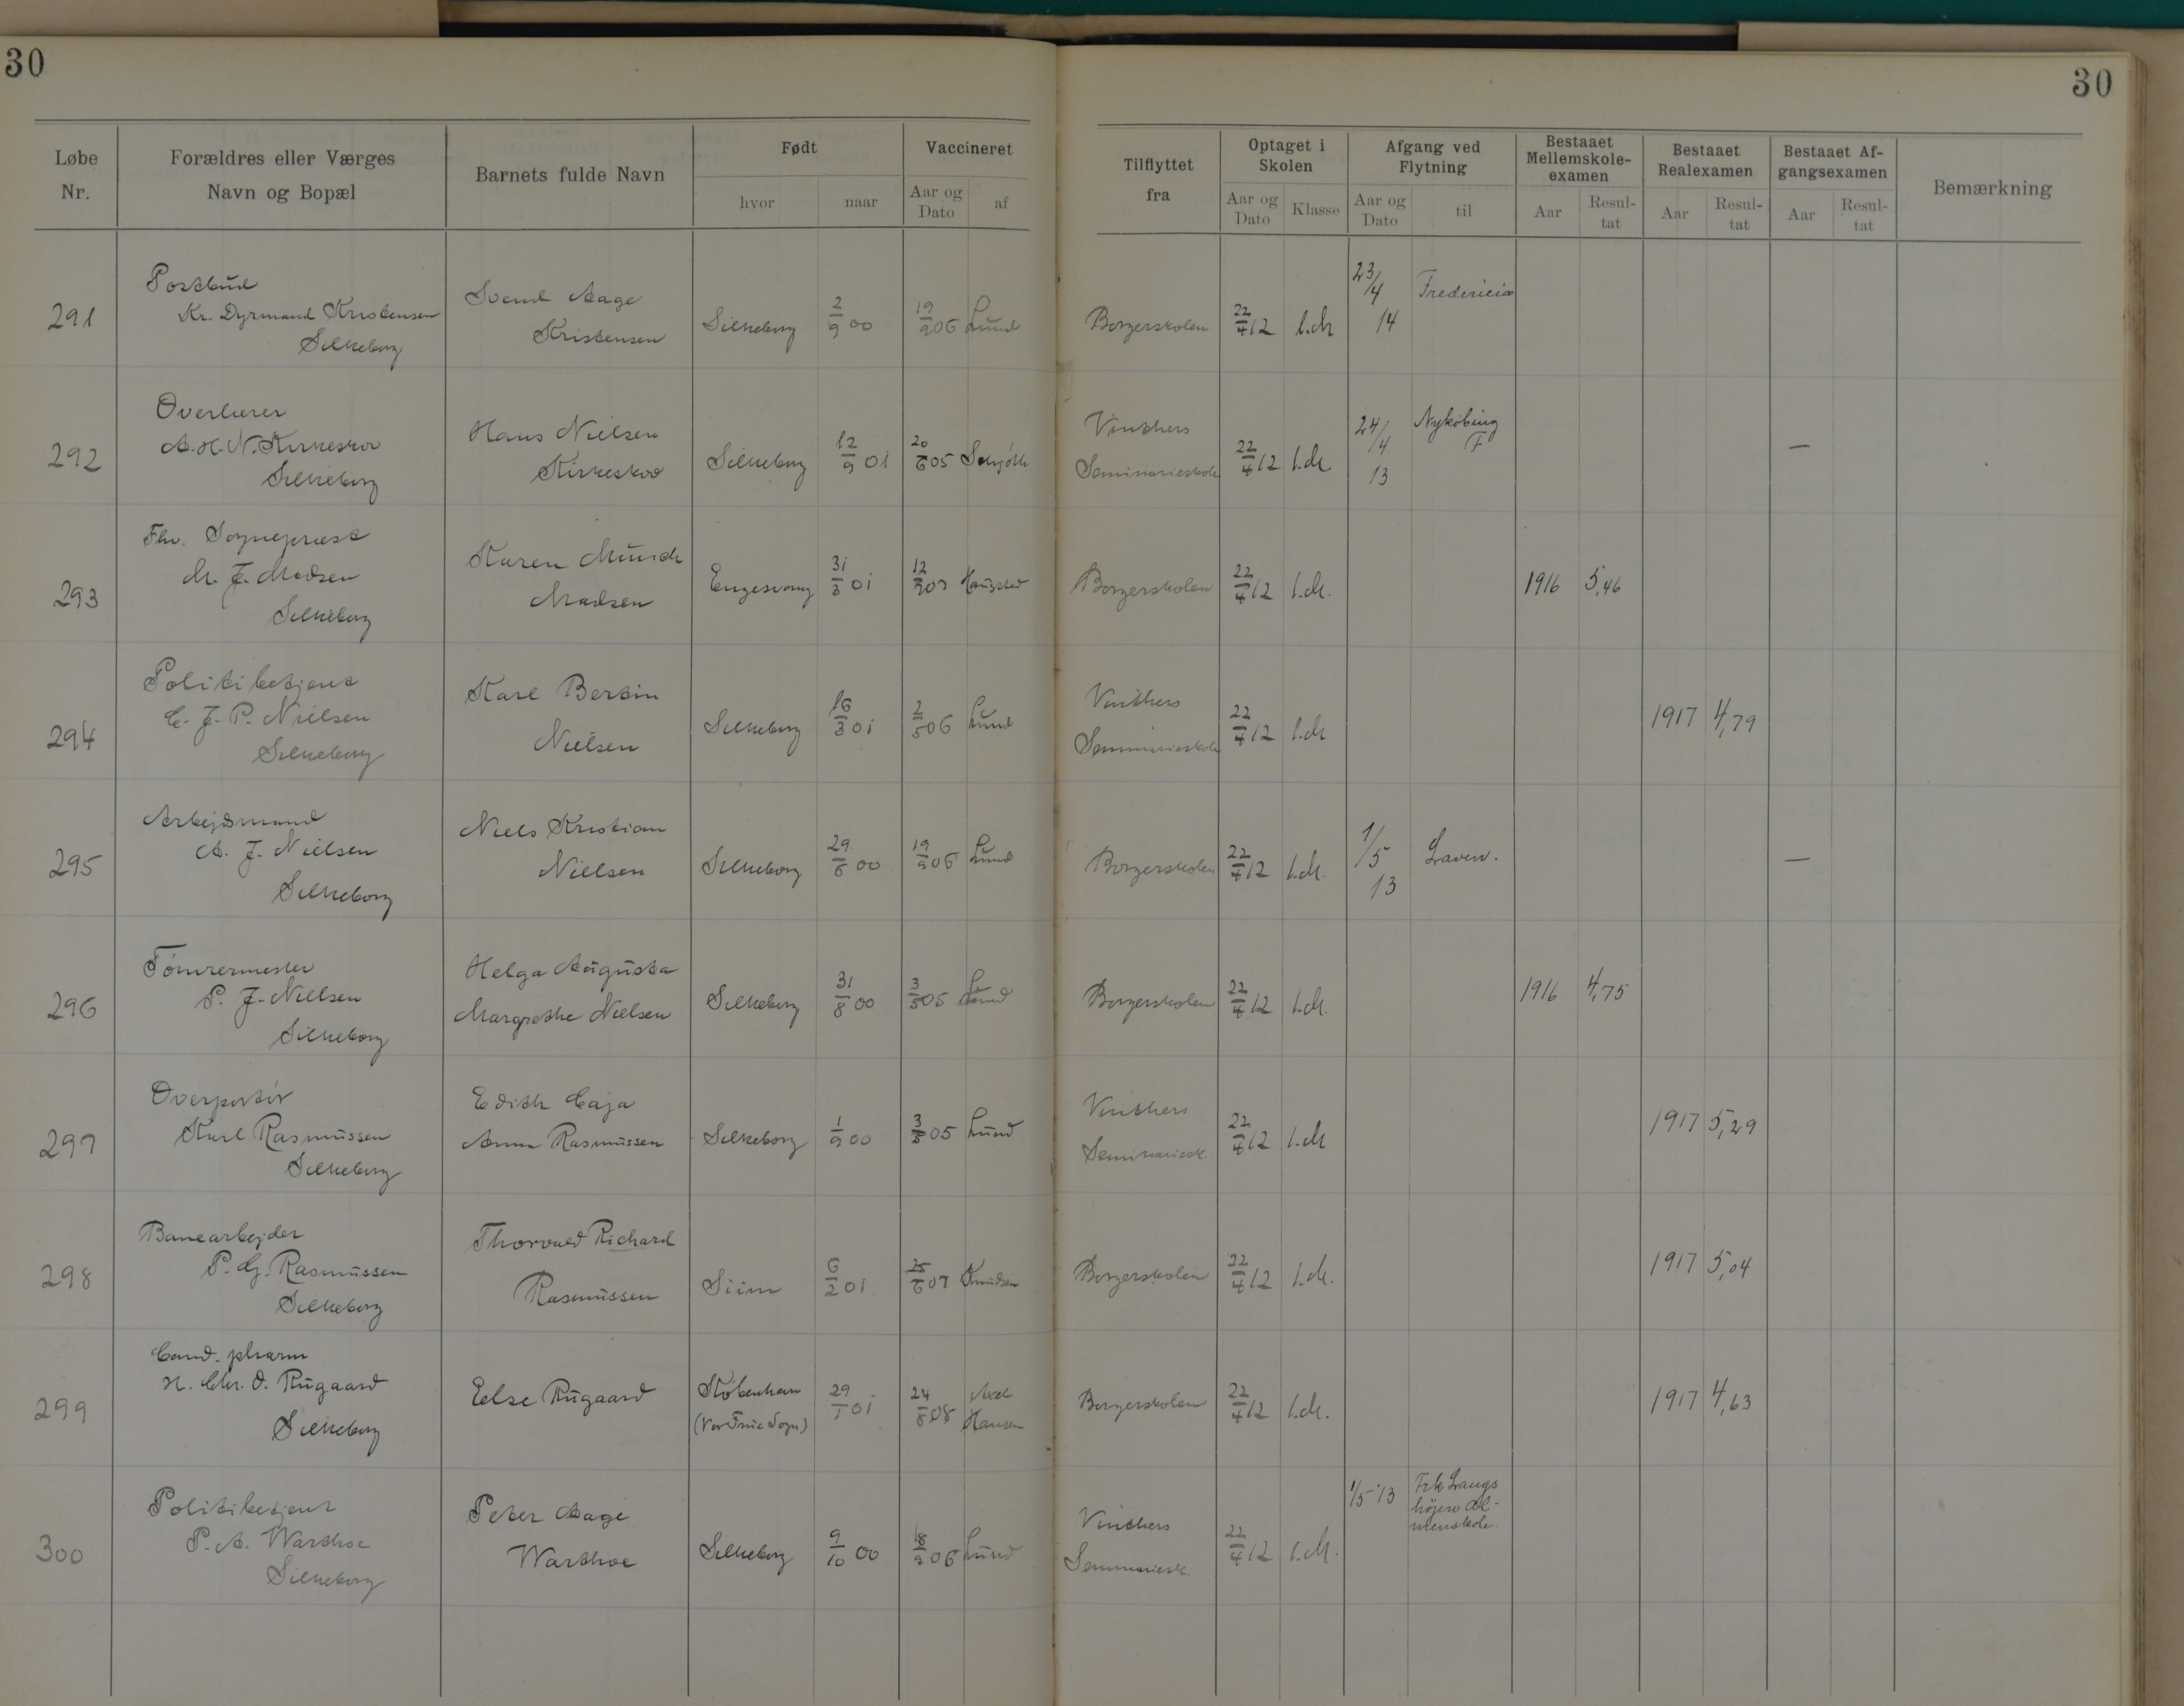 30
30
Løbe Nr.
Forældres eller Værges Navn og Bopæl
Barnets fulde Navn
Født
hvor
naar
Vaccineret
Aar og Dato
af
Tilflyttet fra
Optaget i Skolen
Aar og Dato
Klasse
Afgang ved Flytning
Aar og Dato
til
Bestaaet Mellemskole-examen
Aar
Resul-tat
Bestaaet Realexamen
Aar
Resul-tat
Bestaaet Af-gangsexamen
Aar
Resul-tat
Bemærkning
291
Postbud
Kr. Dyrmand Kristensen
Silkeborg
Svend Aage
Kristensen
Silkeborg
2/9 00
19/9 06
Lund
Borgerskolen
22/4 12
1.M
23/4 14
Fredericia
292
Overlærer
A. H. N. Kirkeskov
Silkeborg
Hans Nielsen
Kirkeskov
Silkeborg
12/9 01
20/6 05
Vinthers
Seminarieskole
22/4 12
1.M.
24/4 13
Nykøbing
F
—
293
Fhv. Sognepræst
M. J. Madsen
Silkeborg
Karen Munch
Madsen
Engesvang
31/3 01
12/9 07
Borgerskolen
22/4 12
1.M.
1916
5,46
294
Politibetjent
C. J. P. Nielsen
Silkeborg
Karl Bertin
Nielsen
Silkeborg
16/3 01
2/5 06
Lund
Vinthers
Seminarieskole
22/4 12
1.M
1917
4,79
295
Arbejdsmand
A. J. Nielsen
Silkeborg
Niels Kristian
Nielsen
Silkeborg
29/6 00
19/9 06
Lund
Borgerskolen
22/4 12
1.M.
1/5 13
Laven.
—
296
Tömrermester
P. J. Nielsen
Silkeborg
Helga Augusta
Margrethe Nielsen
Silkeborg
31/8 00
3/5 05
Lund
Borgerskolen
22/4 12
1.M.
1916
4,75
297
Overportör
Karl Rasmussen
Silkeborg
Edith Caja
Anna Rasmussen
Silkeborg
1/9 00
3/5 05
Lund
Vinthers
Seminariesk.
22/4 12
1.M
1917
5,29
298
Banearbejder
P. G. Rasmussen
Silkeborg
Thorvald Richard
Rasmussen
Siim
6/2 01
25/6 07
Knudsen
Borgerskolen
22/4 12
1.M.
1917
5,04
299
Cand. pharm
H. Chr. O. Rugaard
Silkeborg
Else Rugaard
København
(Vor Frue Sogn)
29/1 01
24/8 08
Axel
Hansen
Borgerskolen
22/4 12
1.M.
1917
4,63
300
Politibetjent
P. A. Warthoe
Silkeborg
Peter Aage
Warthoe
Silkeborg
9/10 00
18/9 06
Lund
Vinthers
Seminariesk.
22/4 12
1.M.
1/5 13
Frk Langs
höjere Al-
menskole.